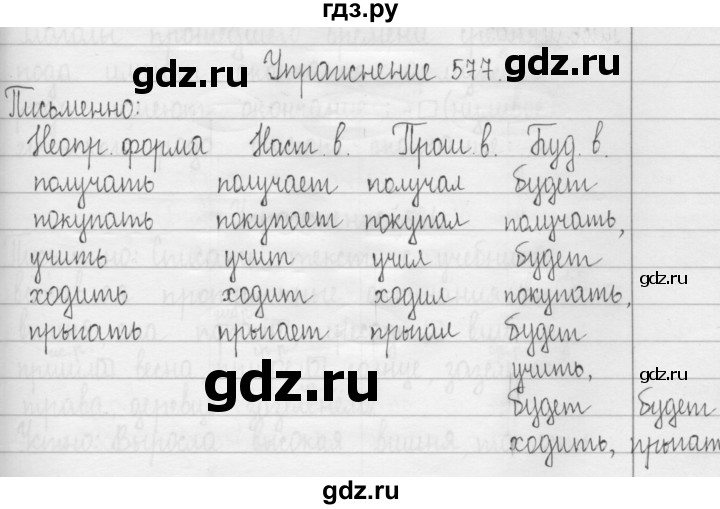 гдз.ру
Упражнение 577.
gdz.ru
gdz.ru
Письменно:
Неопр. форма Наст. в. Прош. в. Буд. в.
получать получает получал будет
покупать покупает покупал получать,
учить учит учил будет
ходить ходит ходил покупать,
gdz.ru
прыгать прыгает прыгал будет
учить,
gdz.ru
gdz.ru
будет будет
ходить, прыгат
gdz.ru